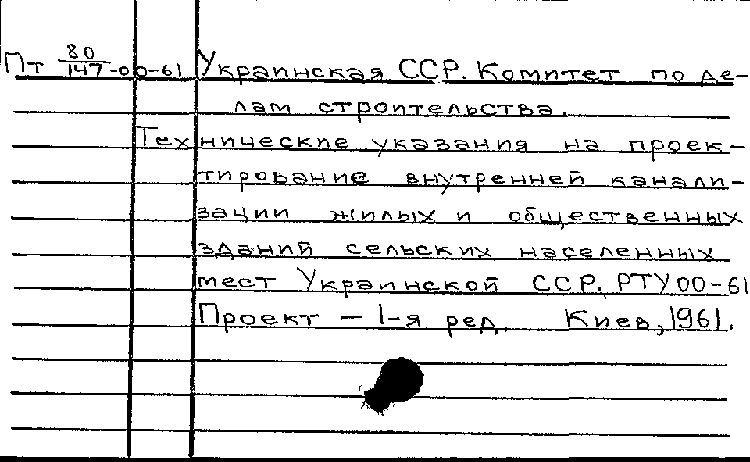 Пт 80/147-00-61 Украинская ССР. Комитет по де-
лам строительства.
Технические указания на проек-
тирование внутренней канали-
зации жилых и общественных
зданий сельских населенных
мест Украинской ССР. РТУ 00-61
Проект — 1-я ред. Киев, 1961.